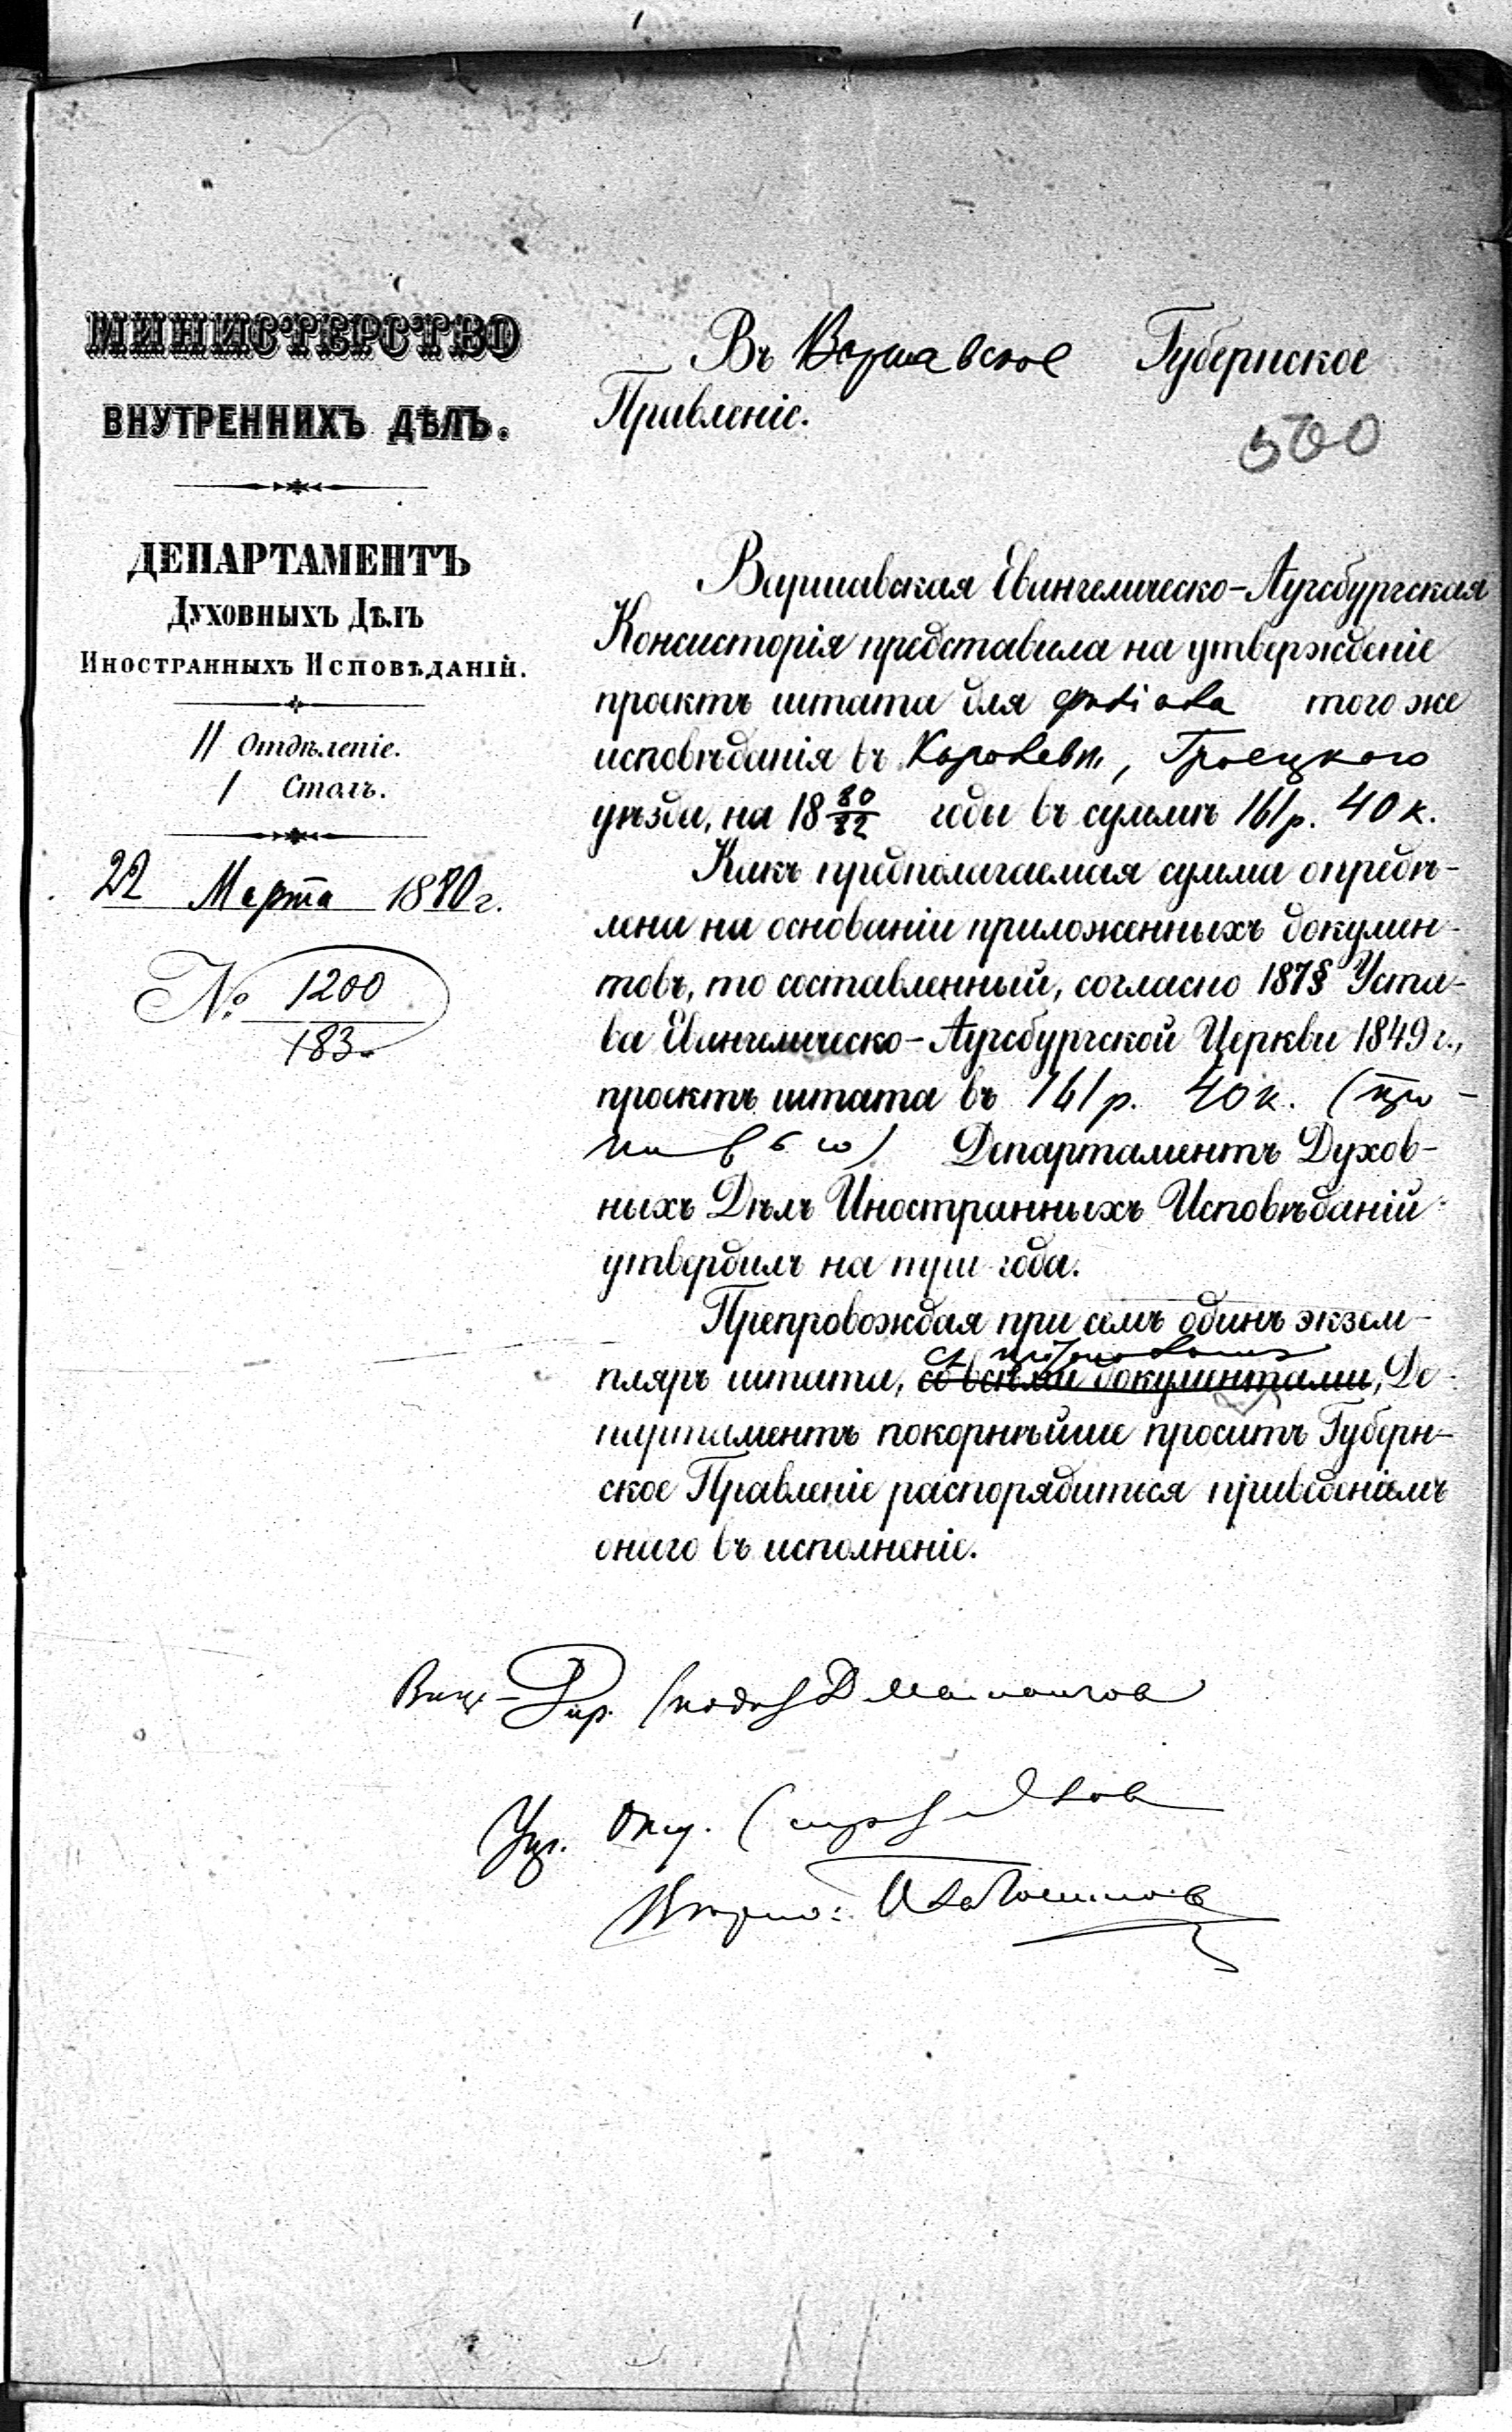 МИНИСТЕРСТВО
ВНУТРЕННИХЪ ДѢЛЪ.
ДЕПАРТАМЕНТЪ
ДУХОВНЫХЪ ДѢЛЪ
ИНОСТРАННЫХЪ ИСПОВѢДАНІЙ.
II Отдѣленіе.
1 Столъ.
22 Марта 1880 г.
№ 1200
183
Въ Варшавское Губернское
Правленіе.
500
Варшавская Евангелическо-Аугсбургская
Консисторія представила на утвержденіе
проектъ штата для филіала того же
исповѣданія въ Королевѣ, Гроецкого
уѣзда, на 18 80/82 годы въ суммѣ 161 р. 40 к.
Какъ предполагаемая сумма опредѣ-
лена на основаніи приложенныхъ докумен-
товъ, то составленный, согласно 187 § Уста-
ва Евангелическо-Аугсбургской Церкви 1849 г.,
проектъ штата въ 161 р. 40 к.
Департаментъ Духов-
ныхъ Дѣлъ Иностранныхъ Исповѣданій
утвердилъ на три года.
Препровождая при семъ одинъ экзем-
пляръ штата, со всѣми документами, Де-
партаментъ покорнѣйше проситъ Губерн-
ское Правленіе распорядиться приведеніемъ
онаго въ исполненіе.
Вице-Дир.